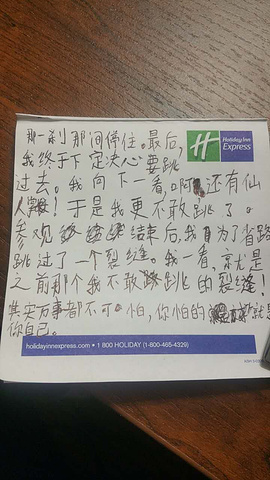 那一刹那间停住。最后,
Holiday Inn
Express
我终于下定决心要跳
过去。我向下一看。啊,还有仙
人!于是我更不敢跳了。
参观结束后,我为了省路
跳过了一个裂缝。我一看,竟就是
之前那个我不敢跳的裂缝!
其实万事都不可怕,你怕的就是
你自己。
holidayinnexpress.com • 1 800 HOLIDAY (1-800-465-4329)